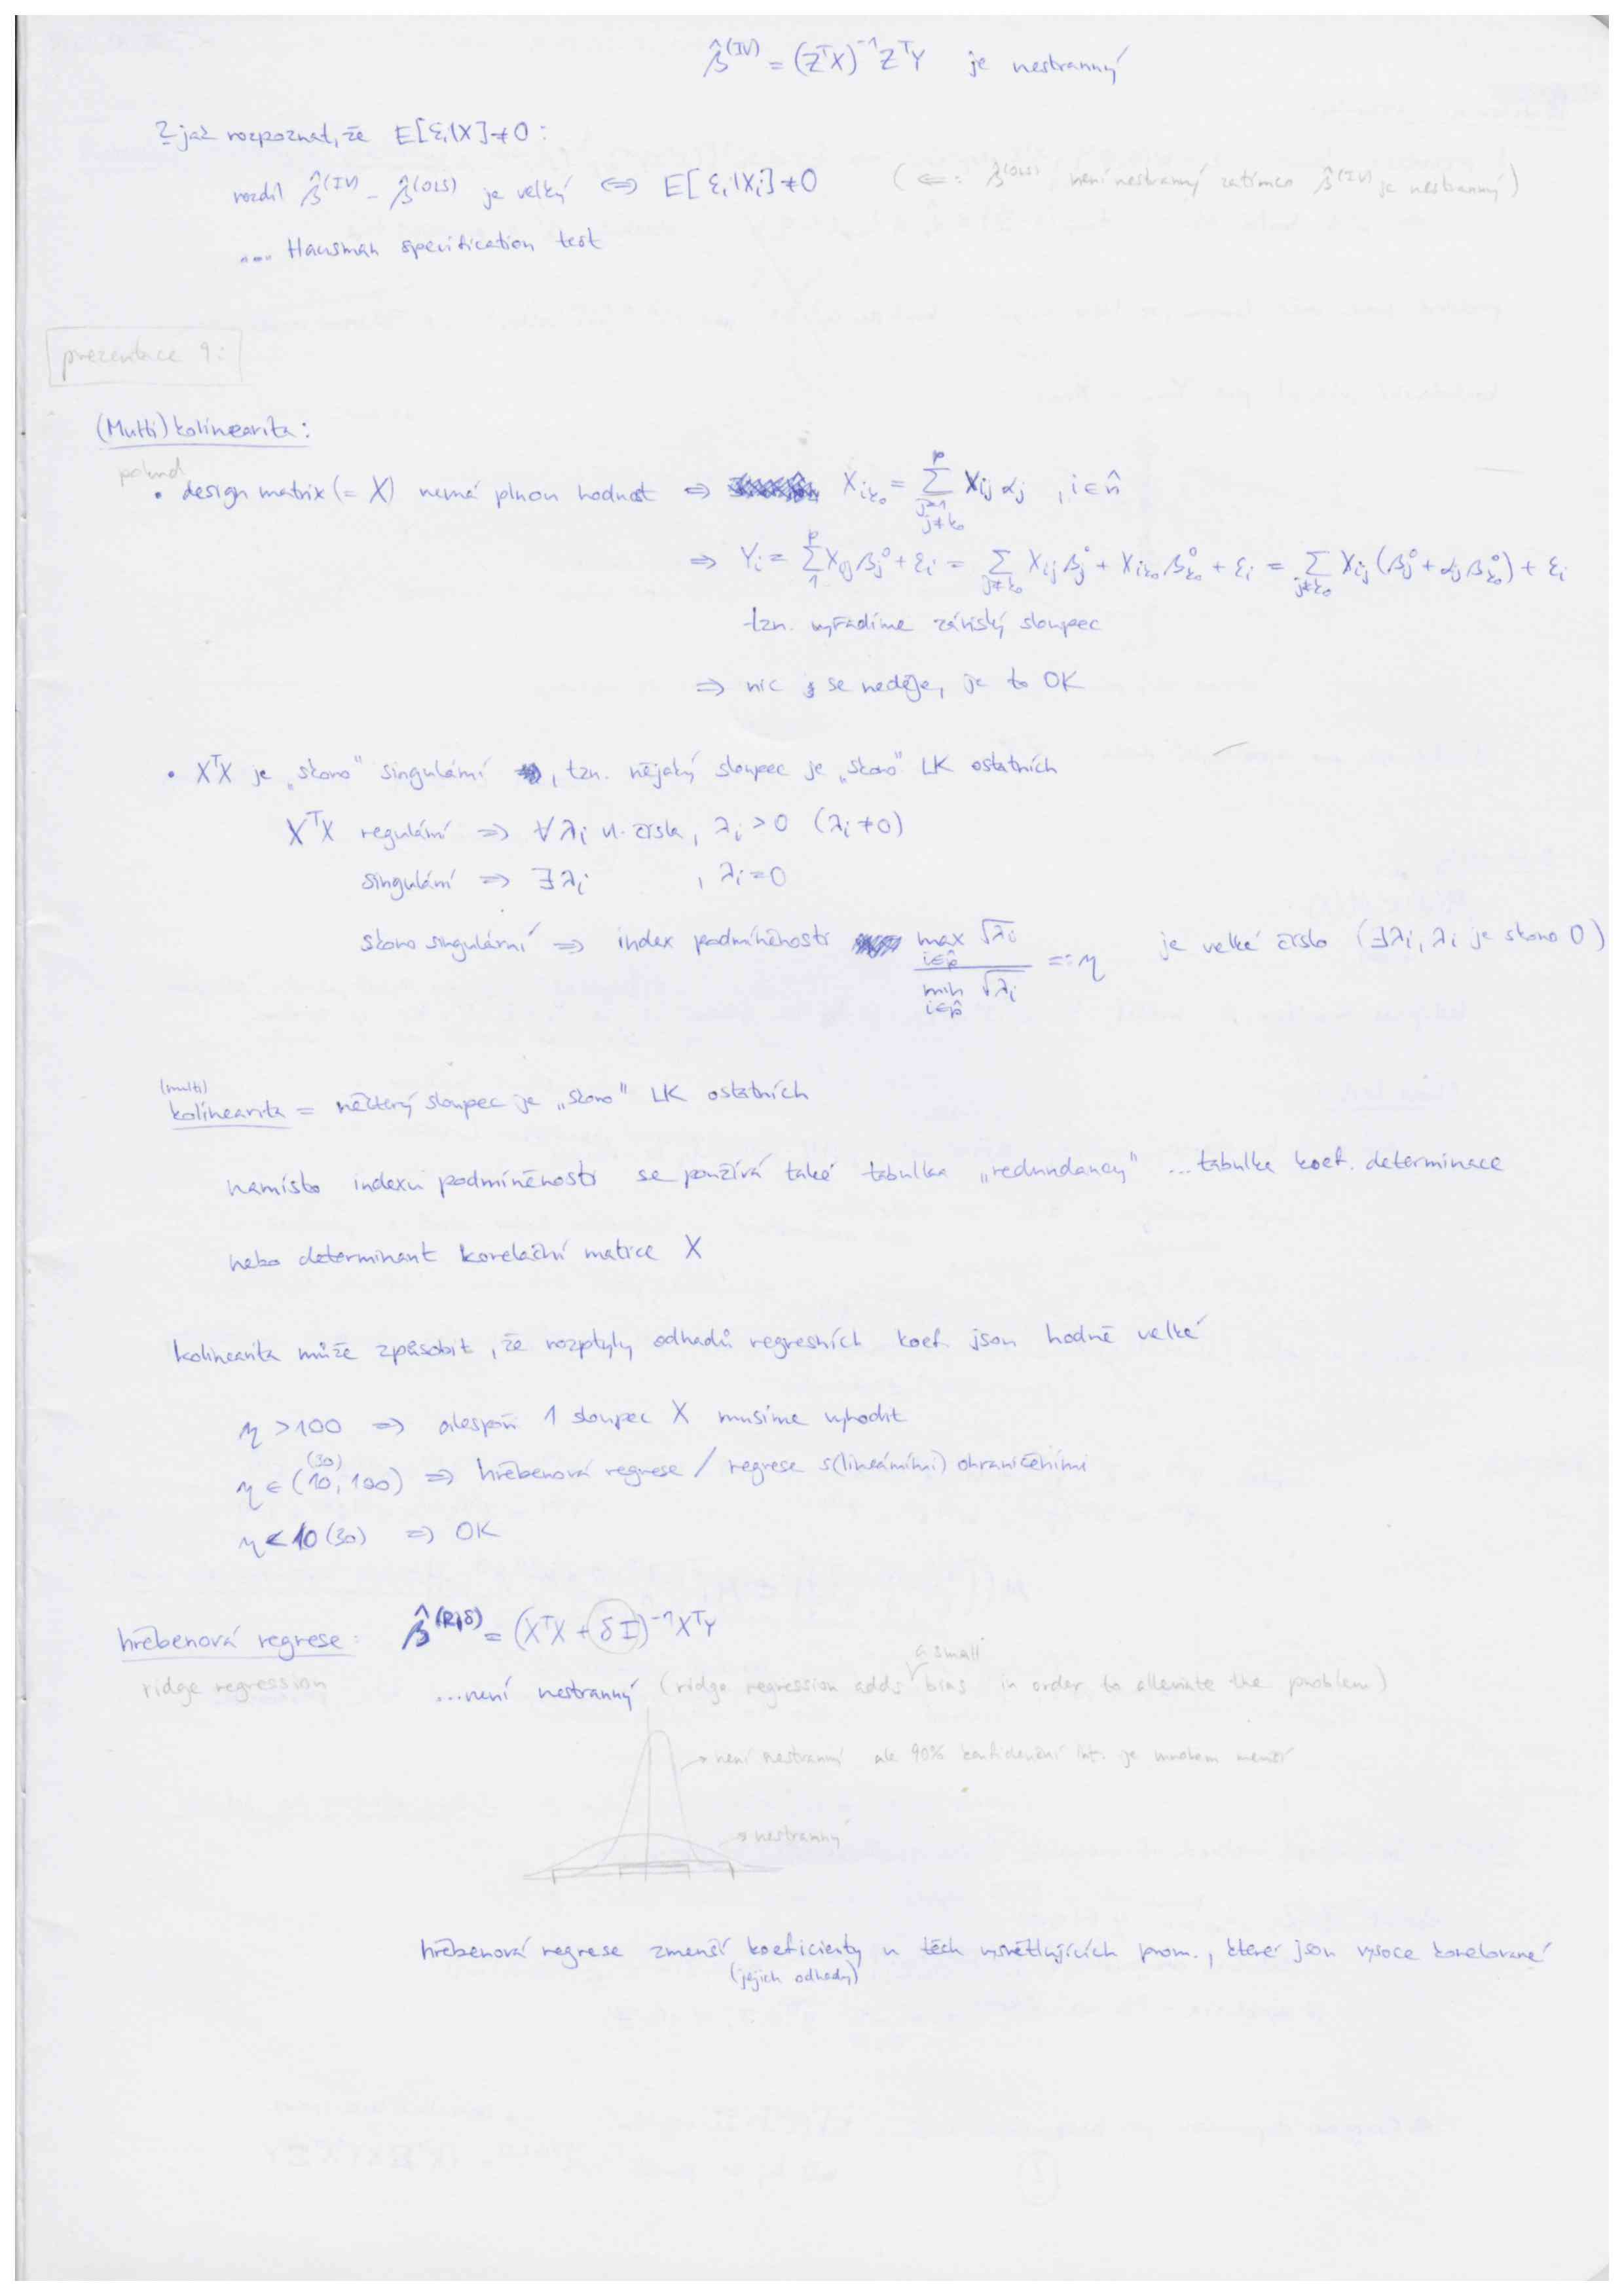 β̂^(IV) = (Z^T X)^-1 Z^T Y je nestranný
? jak rozpoznat, že E[ε_i|X] ≠ 0 :
rozdíl β̂^(IV) - β̂^(OLS) je velký ⟺ E[ε_i|X_i] ≠ 0 (⇐: β̂^(OLS) není nestranný zatímco β̂^(IV) je nestranný)
.... Hausman specification test
prezentace 9:
(Multi) kolinearita:
pokud
• design matrix (= X) nemá plnou hodnost ⇒ X_ik₀ = Σ_{j=1, j≠k₀}^p X_ij α_j , i ∈ n̂
⇒ Y_i = Σ_1^p X_ij β_j^0 + ε_i = Σ_{j≠k₀} X_ij β_j^0 + X_ik₀ β_k₀^0 + ε_i = Σ_{j≠k₀} X_ij (β_j^0 + α_j β_k₀^0) + ε_i
tzn. vyřadíme závislý sloupec
⇒ nic se neděje, je to OK
• X^T X je „skoro" singulární , tzn. nějaký sloupec je „skoro" LK ostatních
X^T X regulární ⇒ ∀ λ_i vl. čísla, λ_i > 0 (λ_i ≠ 0)
singulární ⇒ ∃ λ_i , λ_i = 0
skoro singulární ⇒ index podmíněnosti max_{i∈p̂} √λ_i / min_{i∈p̂} √λ_i =: η je velké číslo (∃λ_i, λ_i je skoro 0)
(multi)
kolinearita = některý sloupec je „skoro" LK ostatních
namísto indexu podmíněnosti se používá také tabulka „redundancy" ... tabulka koef. determinace
nebo determinant korelační matice X
kolinearita může způsobit, že rozptyly odhadů regresních koef. jsou hodně velké
η > 100 ⇒ alespoň 1 sloupec X musíme vyhodit
(30)
η ∈ (10, 100) ⇒ hřebenová regrese / regrese s (lineárními) ohraničeními
η < 10 (30) ⇒ OK
hřebenová regrese: β̂^(R,δ) = (X^T X + δI)^-1 X^T Y
a small
ridge regression ...není nestranný (ridge regression adds bias in order to alleviate the problem)
→ není nestranný ale 90% konfidenční int. je mnohem menší
→ nestranný
hřebenová regrese zmenší koeficienty u těch vysvětlujících prom., které jsou vysoce korelované
(jejich odhady)